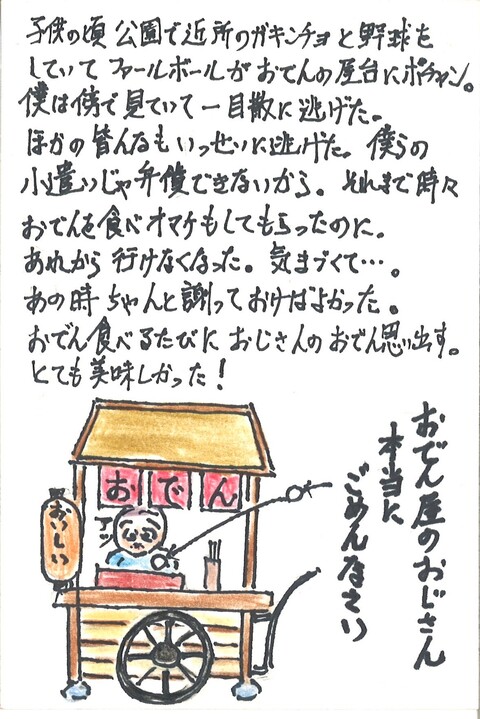 子供の頃 公園で近所のガキンチョと野球を
していて ファールボールが おでんの屋台にポチャン。
僕は傍で見ていて一目散に逃げた。
ほかの皆んなもいっせいに逃げた。僕らの
小遣いじゃ弁償できないから。それまで時々
おでんを食べオマケもしてもらったのに。
あれから行けなくなった。気まづくて…。
あの時ちゃんと謝っておけばよかった。
おでん食べるたびにおじさんのおでん思い出す。
とても美味しかった！
おでん
アッ
おいしい
おでん屋のおじさん
本当に
ごめんなさい